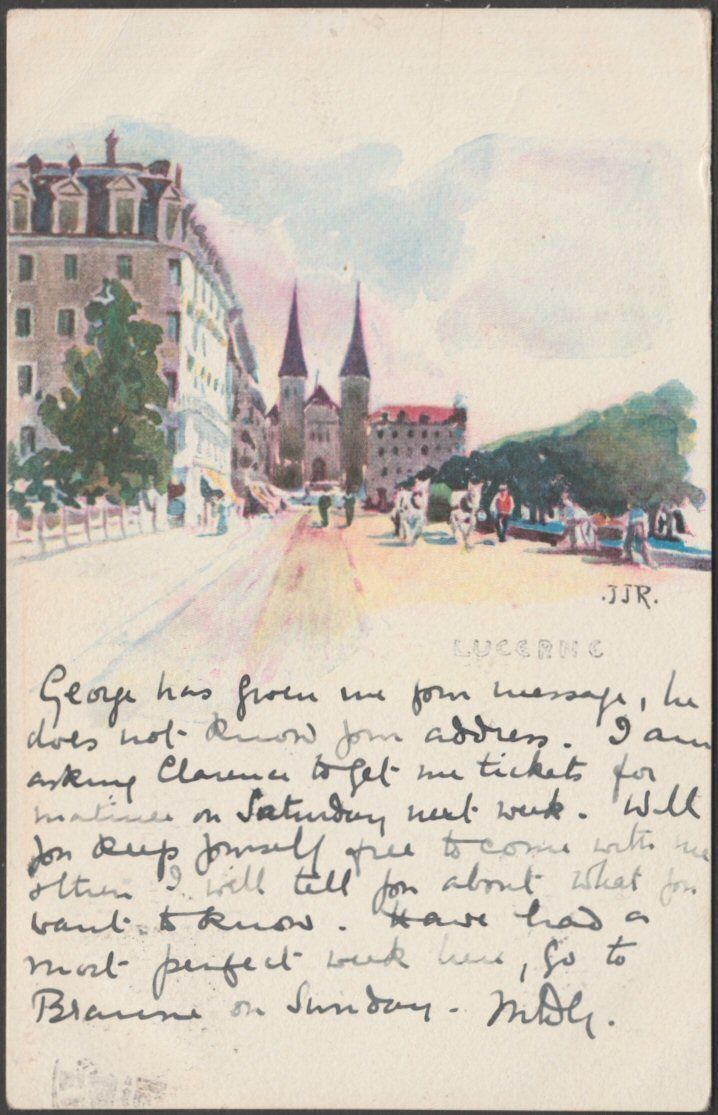 .JJR.
LUCERNE
George has given me your message, he
does not know your address. I am
asking Clarence to get me tickets for
matinee on Saturday next week. Will
you keep yourself free to come with me
& then I will tell you about what you
want to know. Have had a
most perfect week here, go to
on Sunday.